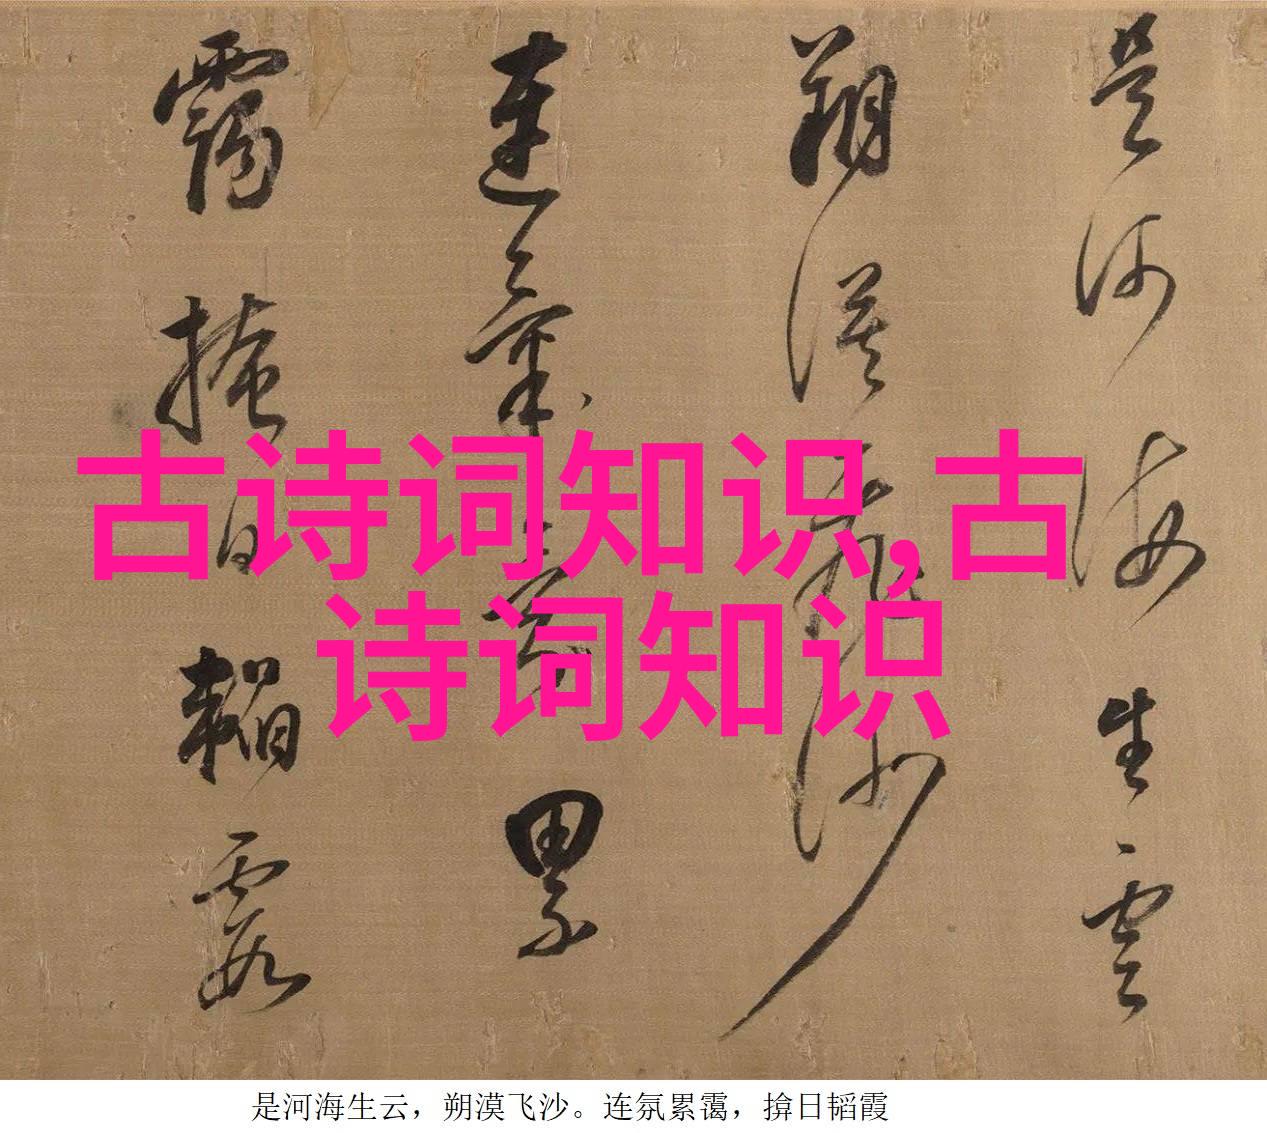 是河海生雲
朔漠飛沙
連氣累
靄掩日韜霞
古诗词知识,古
诗词知识
是河海生云，朔漠飞沙。连氛累霭，揜日韬霞